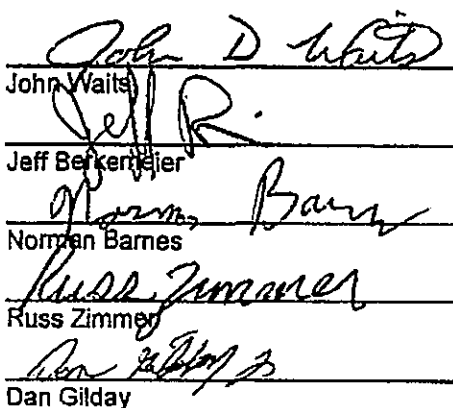 John D Waits
John Waits
Jeff
Jeff Berkemeier
Norman Barnes
Norman Barnes
Russ Zimmer
Russ Zimmer
Dan Gilday